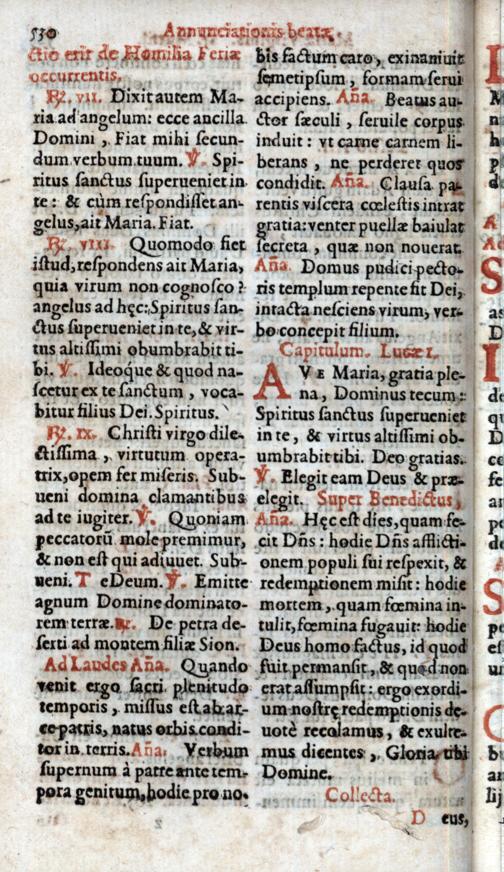 530 Annunciationis beatæ.
ctio erit de Homilia Feriæ
occurrentis.
℟. vii. Dixit autem Ma-
ria ad angelum: ecce ancilla
Domini, Fiat mihi secun-
dum verbum tuum. ℣. Spi-
ritus sanctus superueniet in
te: & cùm respondisset an-
gelus, ait Maria. Fiat.
℟. viii. Quomodo fiet
istud, respondens ait Maria,
quia virum non cognosco?
angelus ad hęc: Spiritus san-
ctus superueniet in te, & vir-
tus altissimi obumbrabit ti-
bi. ℣. Ideoque & quod na-
scetur ex te sanctum, voca-
bitur filius Dei. Spiritus.
℟. ix. Christi virgo dile-
ctissima, virtutum opera-
trix, opem fer miseris. Sub-
ueni domina clamantibus
ad te iugiter. ℣. Quoniam
peccatorū mole premimur,
& non est qui adiuuet. Sub-
ueni. T e Deum. ℣. Emitte
agnum Domine dominato-
rem terræ. ℟. De petra de-
serti ad montem filiæ Sion.
Ad Laudes Aña. Quando
venit ergo sacri plenitudo
temporis, missus est ab ar-
ce patris, natus orbis condi-
tor in terris. Aña. Verbum
supernum à patre ante tem-
pora genitum, hodie pro no-
bis factum caro, exinaniuit
semetipsum, formam serui
accipiens. Aña. Beatus au-
ctor sæculi, seruile corpus
induit: vt carne carnem li-
berans, ne perderet quos
condidit. Aña. Clausa pa-
rentis viscera cœlestis intrat
gratia: venter puellæ baiulat
secreta, quæ non nouerat.
Aña. Domus pudici pecto-
ris templum repente fit Dei,
intacta nesciens virum, ver-
bo concepit filium.
Capitulum. Lucæ 1.
AVE Maria, gratia ple-
na, Dominus tecum:
Spiritus sanctus superueniet
in te, & virtus altissimi ob-
umbrabit tibi. Deo gratias.
℣. Elegit eam Deus & præ-
elegit. Super Benedictus,
Aña. Hęc est dies, quam fe-
cit Dñs: hodie Dñs afflicti-
onem populi sui respexit, &
redemptionem misit: hodie
mortem, quam fœmina in-
tulit, fœmina fugauit: hodie
Deus homo factus, id quod
fuit permansit, & quod non
erat assumpsit: ergo exordi-
um nostrę redemptionis de-
uotè recolamus, & exulte-
mus dicentes, Gloria tibi
Domine.
Collecta.
D eus,